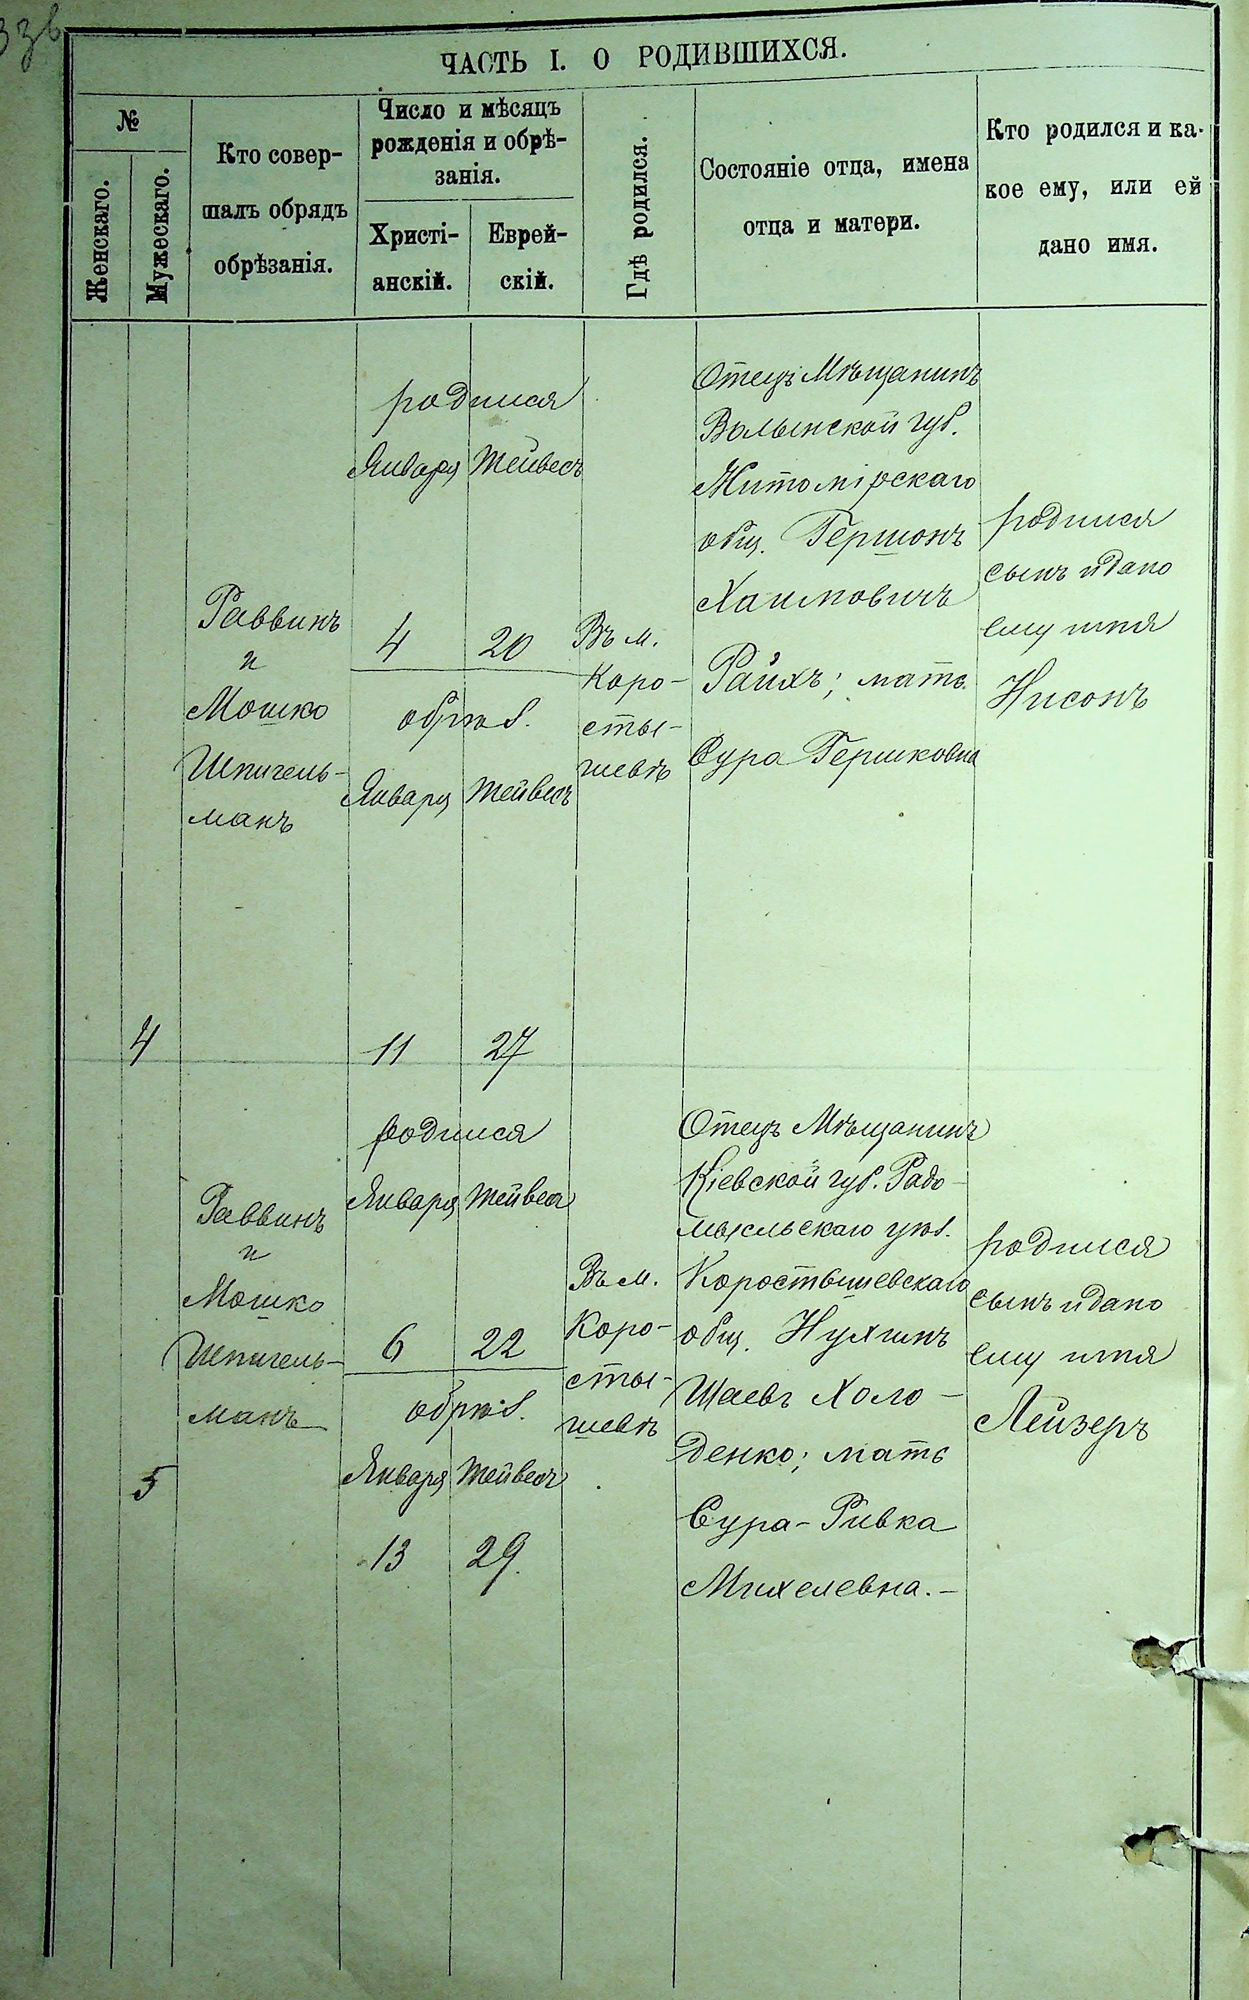 ЧАСТЬ I. О РОДИВШИХСЯ.
№
Женскаго.
Мужескаго.
Кто совер-
шалъ обрядъ
обрѣзанія.
Число и мѣсяцъ
рожденія и обрѣ-
занія.
Христі-
анскій.
Еврей-
скій.
Гдѣ родился.
Состояніе отца, имена
отца и матери.
Кто родился и ка-
кое ему, или ей
дано имя.
4
Раввинъ
и
Мошко
Шпигель-
манъ
родился
Января Тейвесъ
4 20
обрѣз.
Января Тейвесъ
11 27
Въ м.
Коро-
сты-
шевѣ
Отецъ Мѣщанинъ
Волынской губ.
Житомірскаго
общ. Гершонъ
Хаимовичъ
Райхъ; мать
Сура Гершковна
родился
сынъ и дано
ему имя
Нисонъ
5
Раввинъ
и
Мошко
Шпигель-
манъ
родился
Января Тейвесъ
6 22
обрѣз.
Января Тейвесъ
13 29.
Въ м.
Коро-
сты-
шевѣ
Отецъ Мѣщанинъ
Кіевской губ. Радо-
мысльскаго уѣз.
Коростышевскаго
общ. Нухимъ
Шаевъ Холо-
денко; мать
Сура-Ривка
Михелевна.-
родился
сынъ и дано
ему имя
Лейзеръ